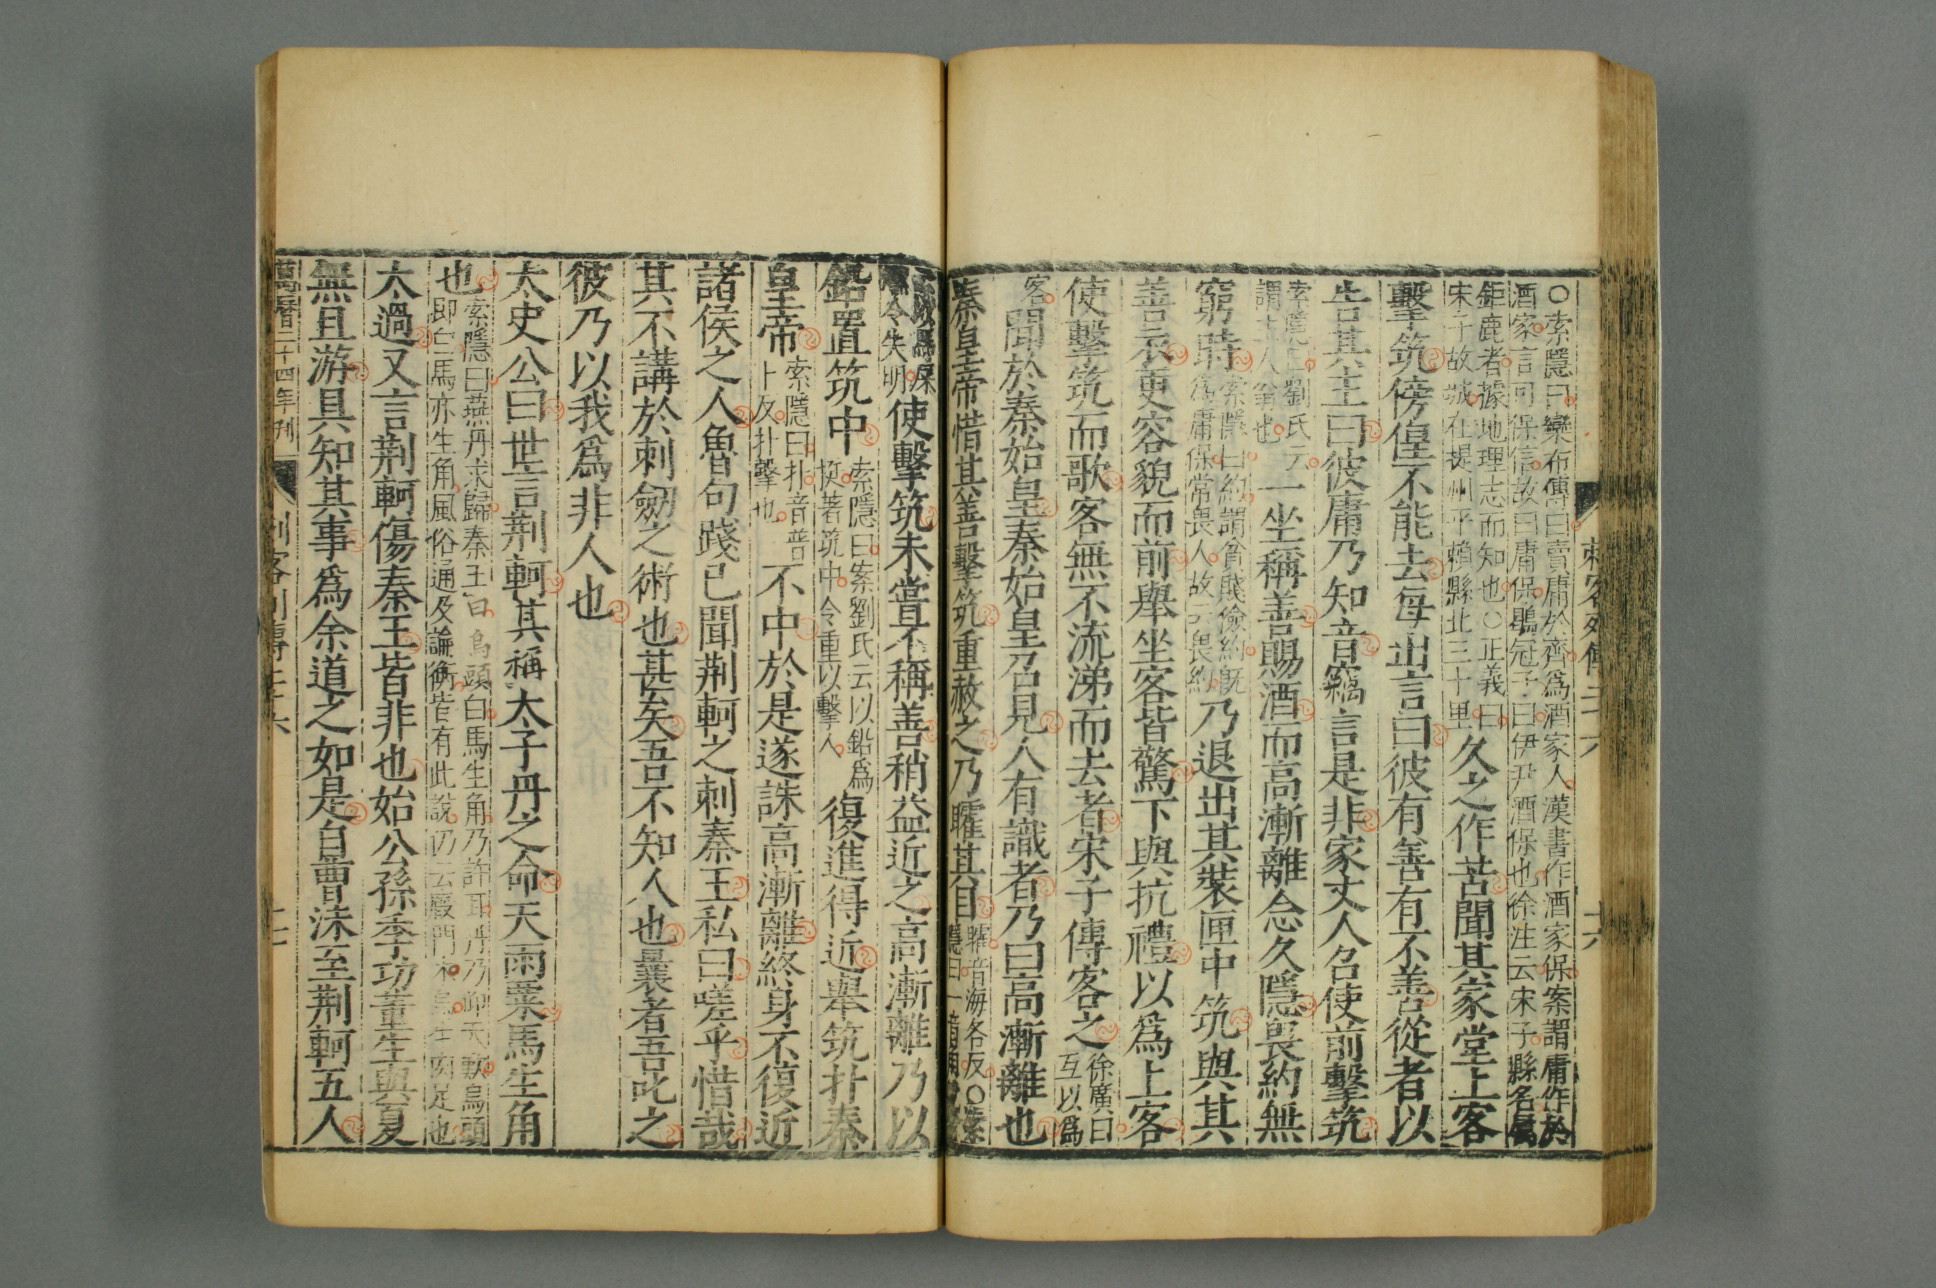 刺客列傳二十六
十六
○索隱曰欒布傳曰賣庸於齊爲酒家人漢書作酒家保案謂庸作於
酒家言可保信故曰庸保鶡冠子曰伊尹酒保也徐注云宋子縣名屬
鉅鹿者據地理志而知也○正義曰
宋子故城在趙州平棘縣北三十里
久之作苦聞其家堂上客
擊筑傍偟不能去每出言曰彼有善有不善從者以
告其主曰彼庸乃知音竊言是非家丈人召使前擊筑
索隱曰劉氏云
謂主人翁也
一坐稱善賜酒而高漸離念久隱畏約無
窮時
索隱曰約謂貧賤儉約旣
爲庸保常畏人故云畏約
乃退出其裝匣中筑與其
善衣更容貌而前舉坐客皆驚下與抗禮以爲上客
使擊筑而歌客無不流涕而去者宋子傳客之
徐廣曰
互以爲
客
聞於秦始皇秦始皇召見人有識者乃曰高漸離也
秦皇帝惜其善擊筑重赦之乃矐其目
矐音海各反○索
隱曰一音
令失明
使擊筑未嘗不稱善稍益近之高漸離乃以
鉛置筑中
索隱曰案劉氏云以鉛爲
挺著筑中令重以擊人
復進得近舉筑扑秦
皇帝
索隱曰扑音普
卜反扑擊也
不中於是遂誅高漸離終身不復近
諸侯之人魯句踐已聞荆軻之刺秦王私曰嗟乎惜哉
其不講於刺劒之術也甚矣吾不知人也曩者吾叱之
彼乃以我爲非人也
太史公曰世言荆軻其稱太子丹之命天雨粟馬生角
也
索隱曰燕丹求歸秦王曰烏頭白馬生角乃許耳丹乃仰天歎烏頭
即白馬亦生角風俗通及論衡皆有此說仍云廄門木烏生肉足也
太過又言荆軻傷秦王皆非也始公孫季功董生與夏
無且游具知其事爲余道之如是自曹沬至荆軻五人
萬曆二十四年刊
刺客列傳二十六
十七